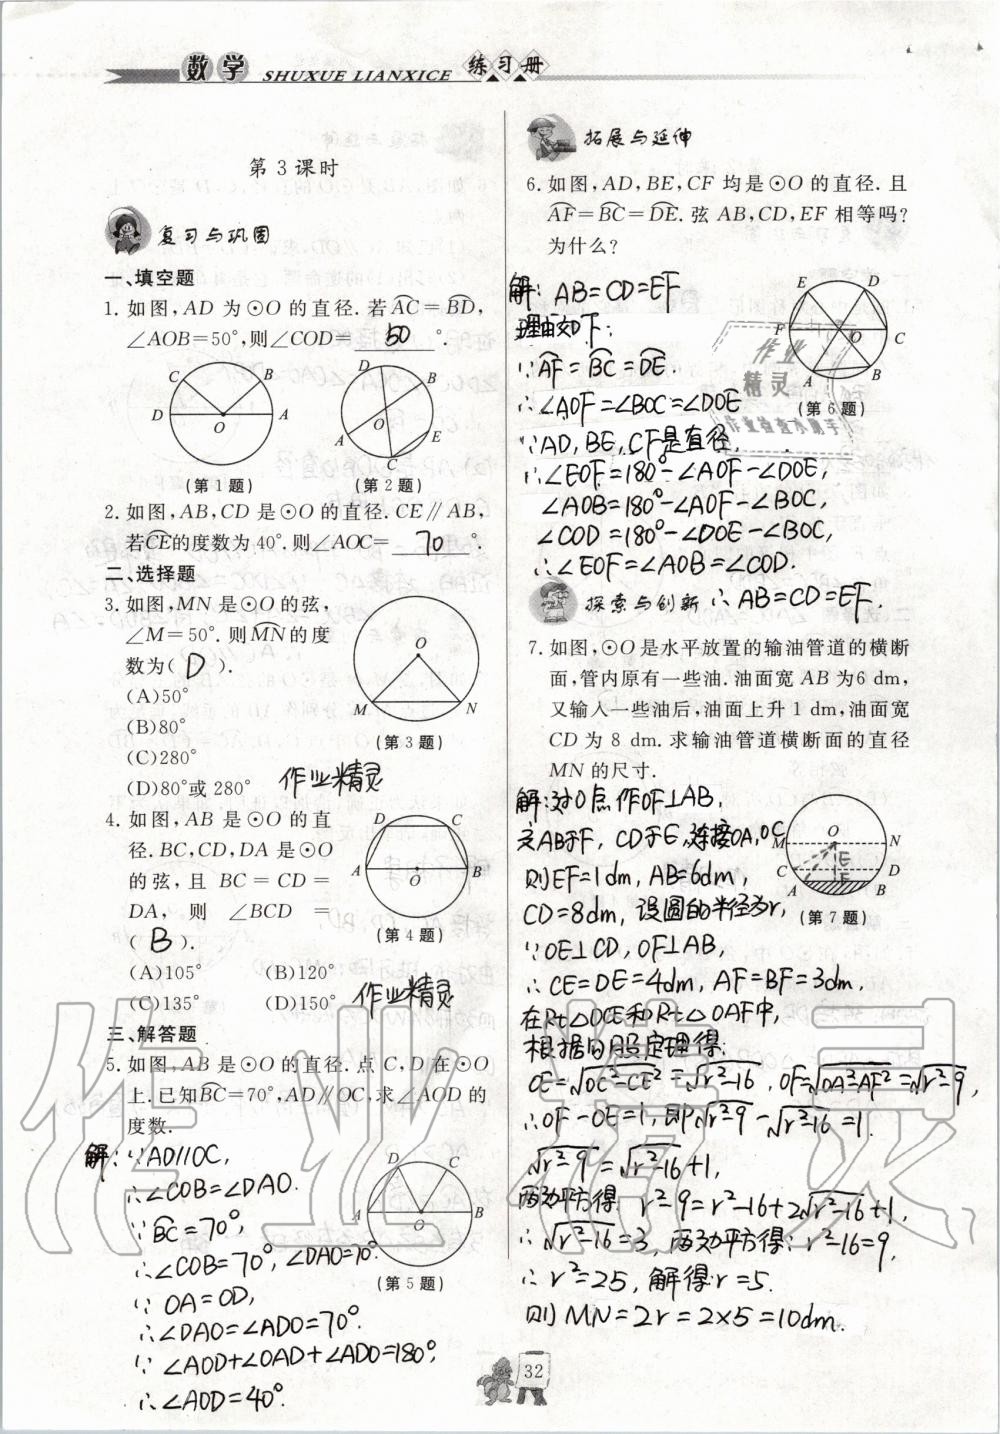 数学 SHUXUE LIANXICE 练习册
第3课时
复习与巩固
一、填空题
1. 如图,AD 为⊙O 的直径.若⌒AC=⌒BD,
∠AOB=50°,则∠COD= 50 °.
C B
D O A
(第1题)
D B
O
A C E
(第2题)
2. 如图,AB,CD 是⊙O 的直径.CE∥AB,
若⌒CE的度数为40°.则∠AOC= 70 °.
二、选择题
3. 如图,MN 是⊙O 的弦,
∠M=50°.则⌒MN的度
数为( D ).
(A)50°
(B)80°
(C)280°
(D)80°或 280°
O
M N
(第3题)
作业精灵
4. 如图,AB 是⊙O 的直
径.BC,CD,DA 是⊙O
的弦,且 BC=CD=
DA,则 ∠BCD=
( B ).
(A)105° (B)120°
(C)135° (D)150°
D C
A O B
(第4题)
作业精灵
三、解答题
5. 如图,AB 是⊙O 的直径.点 C,D 在⊙O
上.已知⌒BC=70°,AD∥OC,求∠AOD的
度数.
解:∵AD//OC,
∴∠COB=∠DAO.
∵⌒BC=70°,
∴∠COB=70°,∠DAO=70°.
∵OA=OD,
∴∠DAO=∠ADO=70°.
∵∠AOD+∠OAD+∠ADO=180°,
∴∠AOD=40°.
D C
A O B
(第5题)
拓展与延伸
6. 如图,AD,BE,CF 均是⊙O 的直径.且
⌒AF=⌒BC=⌒DE.弦 AB,CD,EF 相等吗?
为什么?
解:AB=CD=EF
理由如下:
∵⌒AF=⌒BC=⌒DE.
∴∠AOF=∠BOC=∠DOE
∵AD,BE,CF是直径,
∴∠EOF=180°-∠AOF-∠DOE,
∠AOB=180°-∠AOF-∠BOC,
∠COD=180°-∠DOE-∠BOC,
∴∠EOF=∠AOB=∠COD.
∴AB=CD=EF.
E D
F O C
A B
(第6题)
作业
精灵
作业检查小助手
探索与创新
7. 如图,⊙O 是水平放置的输油管道的横断
面,管内原有一些油.油面宽 AB 为6 dm,
又输入一些油后,油面上升 1 dm,油面宽
CD 为 8 dm.求输油管道横断面的直径
MN 的尺寸.
解:过O点作OF⊥AB,
交AB于F,CD于E,连接OA,OC
则EF=1dm,AB=6dm,
CD=8dm,设圆的半径为r,
∵OE⊥CD,OF⊥AB,
∴CE=DE=4dm,AF=BF=3dm.
在Rt△OCE和Rt△OAF中,
根据勾股定理得:
OE=√OC²-CE²=√r²-16,OF=√OA²-AF²=√r²-9,
∴OF-OE=1,即√r²-9-√r²-16=1.
√r²-9=√r²-16+1,
两边平方得:r²-9=r²-16+2√r²-16+1,
∴√r²-16=3,两边平方得:r²-16=9,
∴r²=25,解得:r=5.
则MN=2r=2×5=10dm.
M O N
C E D
A F B
(第7题)
作业精灵
32